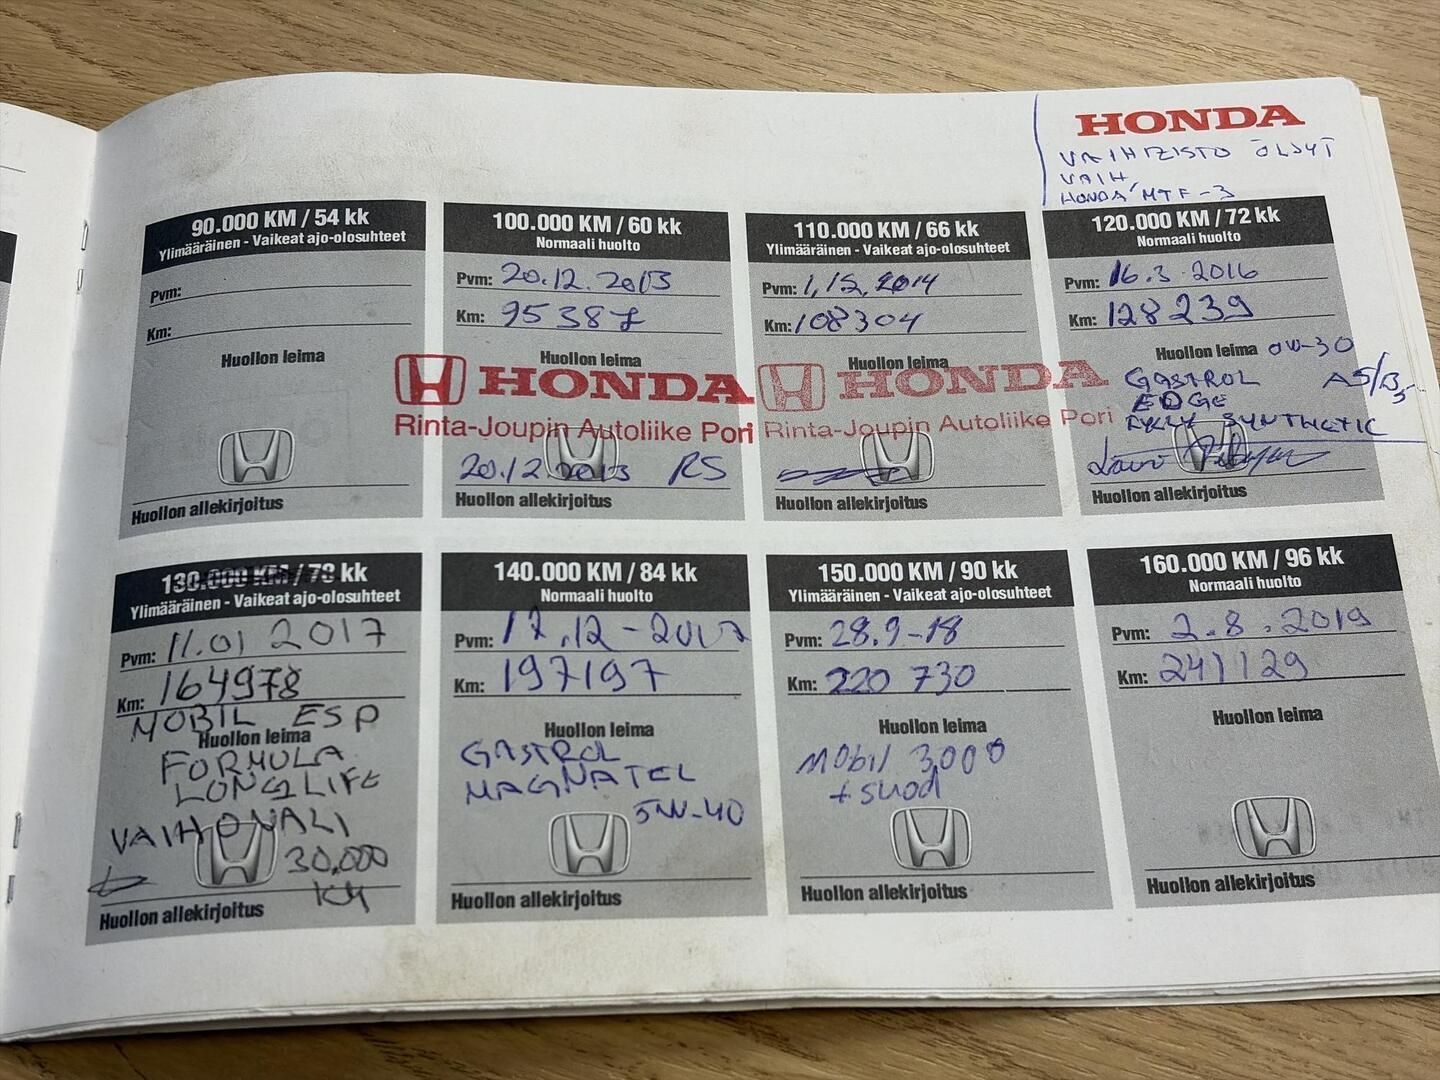 HONDA
VAIHTEISTO ÖLJYT
VAIH.
HONDA MTF-3
90.000 KM / 54 kk
Ylimääräinen - Vaikeat ajo-olosuhteet
Pvm:
Km:
Huollon leima
Huollon allekirjoitus
100.000 KM / 60 kk
Normaali huolto
Pvm: 20.12.2013
Km: 95387
Huollon leima
HONDA
Rinta-Joupin Autoliike Pori
20.12.2013 RS
Huollon allekirjoitus
110.000 KM / 66 kk
Ylimääräinen - Vaikeat ajo-olosuhteet
Pvm: 1.12.2014
Km: 108304
Huollon leima
HONDA
Rinta-Joupin Autoliike Pori
Huollon allekirjoitus
120.000 KM / 72 kk
Normaali huolto
Pvm: 16.3.2016
Km: 128239
Huollon leima 0W-30
CASTROL A5/B5
EDGE
FULLY SYNTHETIC
Huollon allekirjoitus
130.000 KM / 78 kk
Ylimääräinen - Vaikeat ajo-olosuhteet
Pvm: 11.01 2017
Km: 164978
MOBIL ESP
Huollon leima
FORMULA
LONGLIFE
VAIHOVÄLI
30.000
KM
Huollon allekirjoitus
140.000 KM / 84 kk
Normaali huolto
Pvm: 17.12-2017
Km: 197197
Huollon leima
CASTROL
MAGNATEC
5W-40
Huollon allekirjoitus
150.000 KM / 90 kk
Ylimääräinen - Vaikeat ajo-olosuhteet
Pvm: 28.9-18
Km: 220 730
Huollon leima
MObil 3000
+ suod
Huollon allekirjoitus
160.000 KM / 96 kk
Normaali huolto
Pvm: 2.8.2019
Km: 241129
Huollon leima
Huollon allekirjoitus